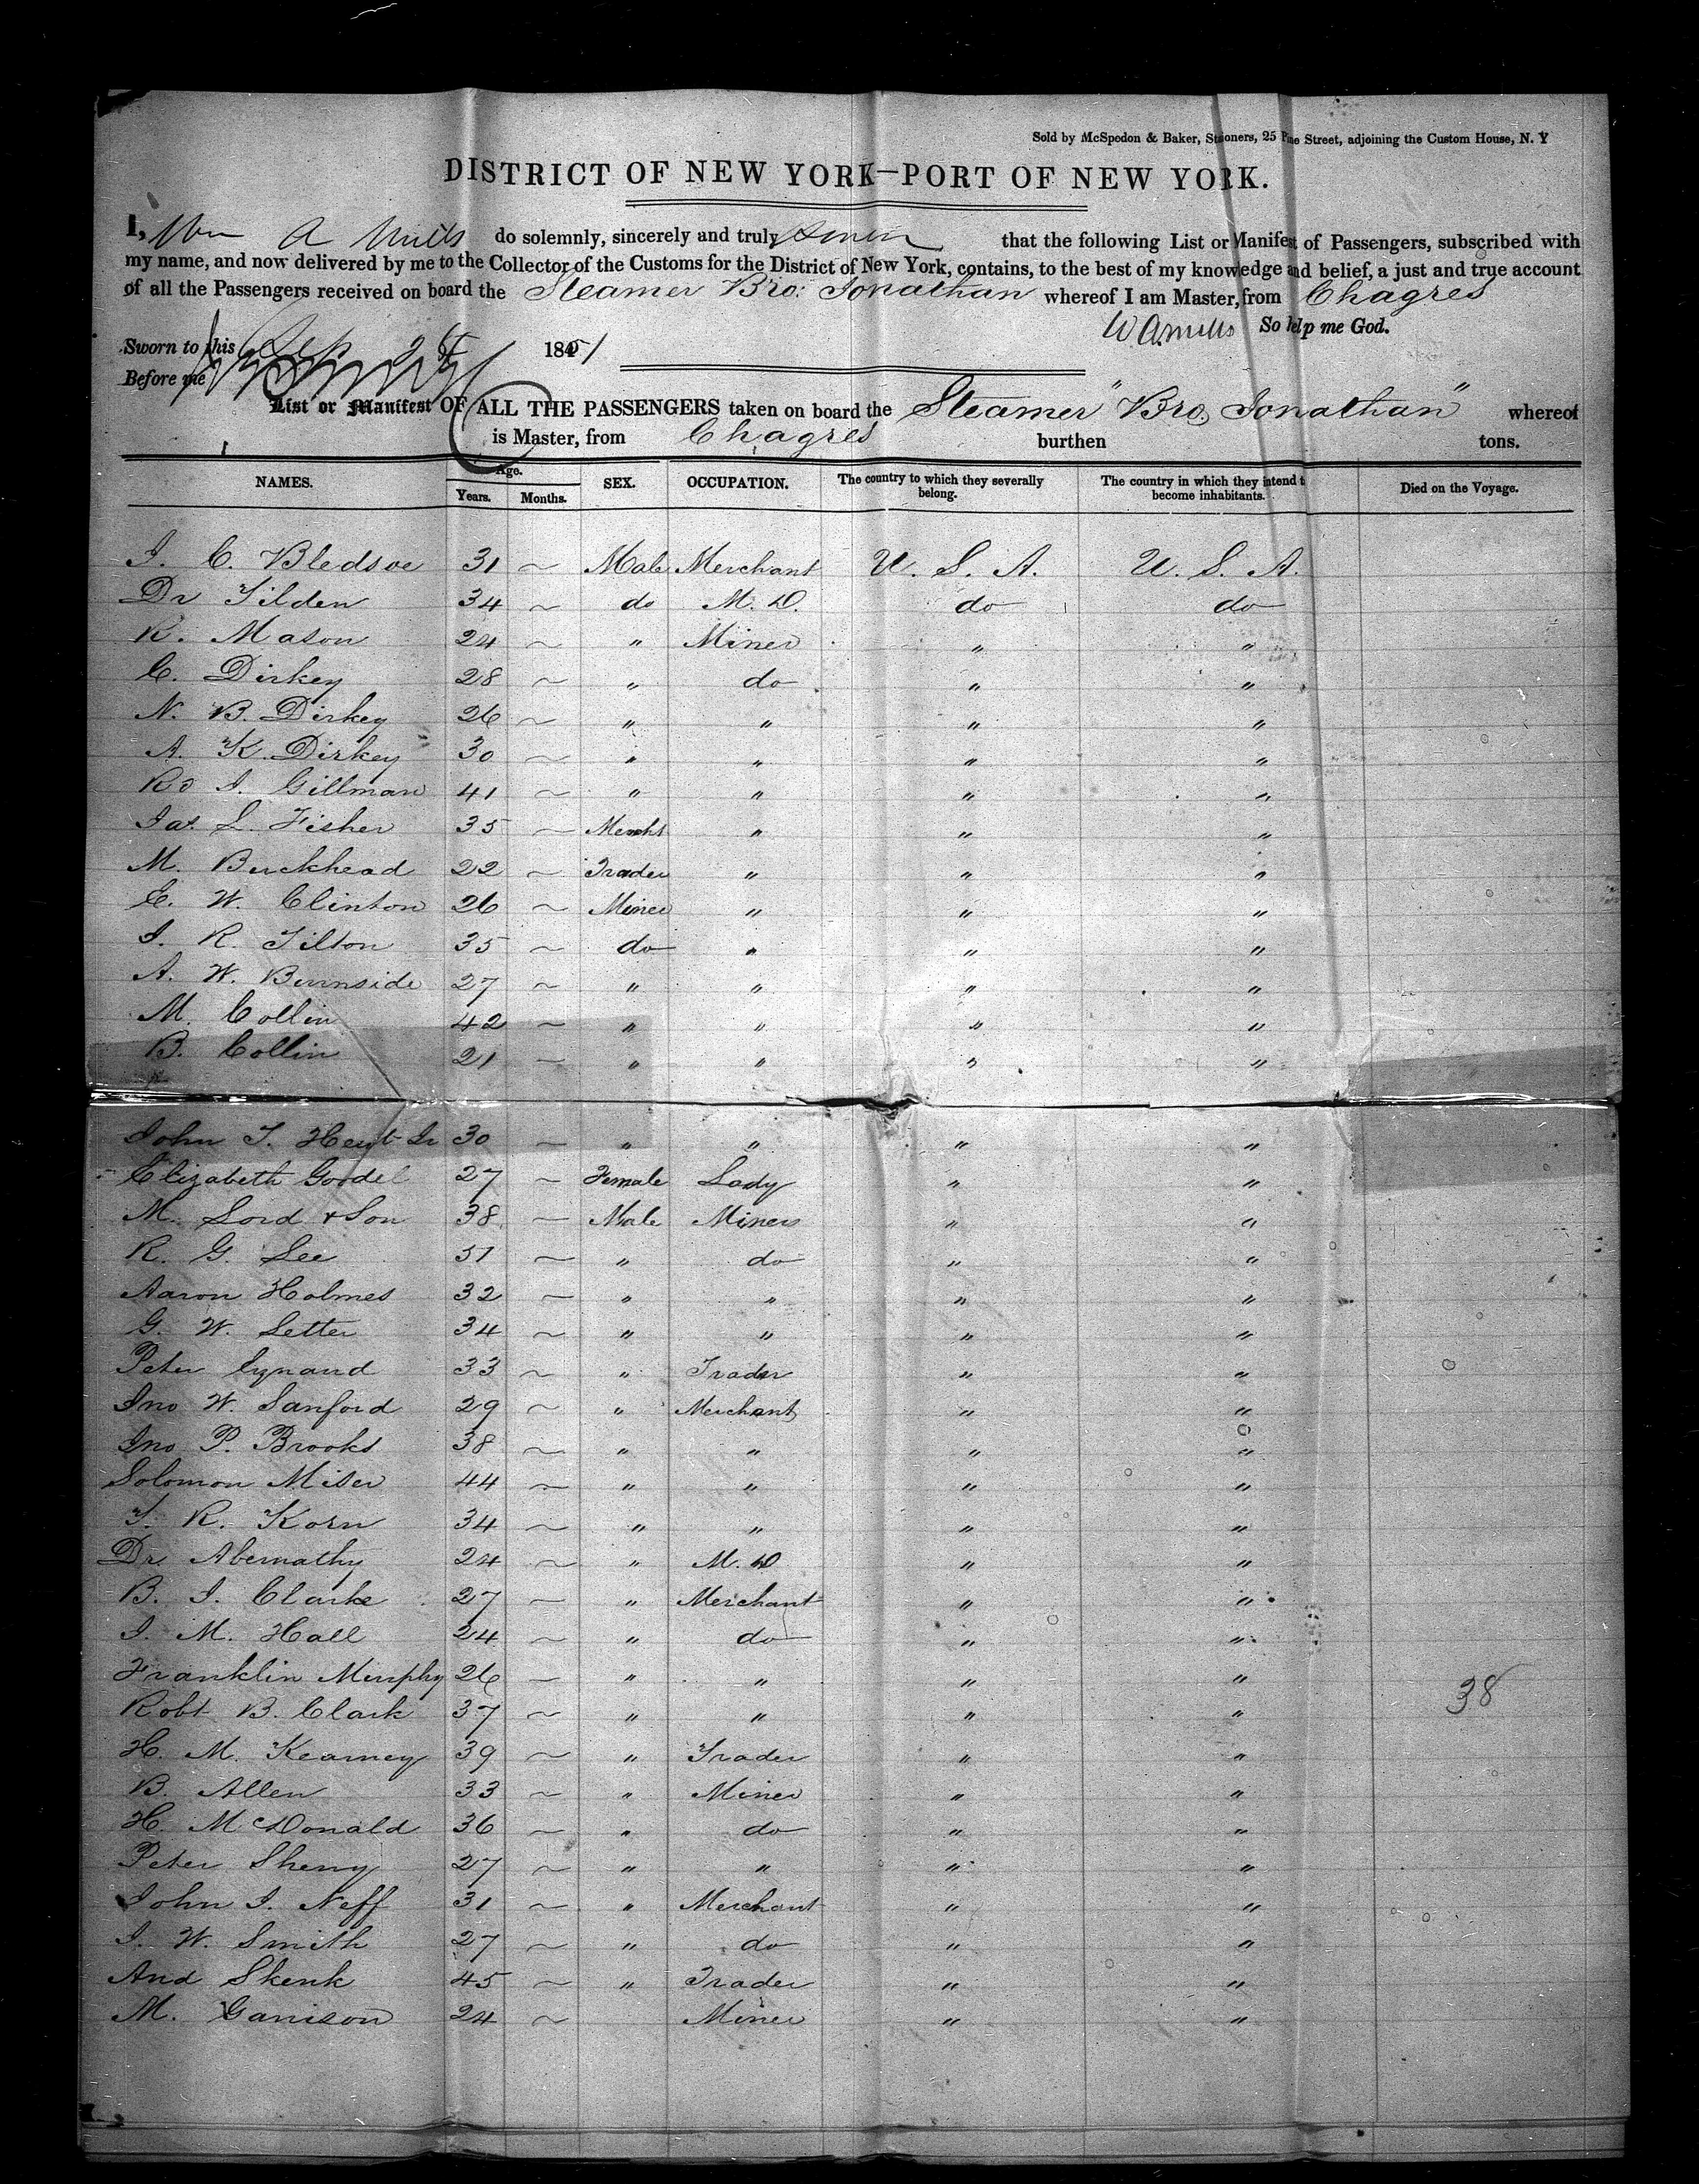 Sold by McSpedon & Baker, Stationers, 25 Pine Street, adjoining the Custom House, N. Y
DISTRICT OF NEW YORK—PORT OF NEW YORK.
I, Wm A Mills do solemnly, sincerely and truly swear that the following List or Manifest of Passengers, subscribed with
my name, and now delivered by me to the Collector of the Customs for the District of New York, contains, to the best of my knowledge and belief, a just and true account
of all the Passengers received on board the Steamer Bro: Jonathan whereof I am Master, from Chagres
W A Mills So help me God.
Sworn to this Sep 1851
Before me
List or Manifest OF ALL THE PASSENGERS taken on board the Steamer "Bro. Jonathan" whereof
is Master, from Chagres burthen tons.
NAMES. Age. Years. Months. SEX. OCCUPATION. The country to which they severally belong. The country in which they intend t become inhabitants. Died on the Voyage.
J. C. Bledsoe 31 ~ Male Merchant U. S. A. U. S. A.
Dr Tilden 34 ~ do M. D. do do
R. Mason 24 ~ " Miner " "
C. Dirkey 28 ~ " do " "
N. B. Dirkey 26 ~ " " " "
A. K. Dirkey 30 ~ " " " "
Rd J. Gillman 41 ~ " " " "
Jas. L. Fisher 35 ~ Mercht " " "
M. Buckhead 22 ~ Trader " " "
E. W. Clinton 26 ~ Miner " " "
J. R. Tilton 35 ~ do " " "
A. W. Burnside 27 ~ " " " "
M. Collin 42 ~ " " " "
B. Collin 21 ~ " " " "
John T. Hewt Jr 30 ~ " " " "
Elizabeth Goodel 27 ~ Female Lady " "
M. Lord & Son 38 ~ Male Miners " "
R. G. Lee 51 ~ " do " "
Aaron Holmes 32 ~ " " " "
G. W. Setter 34 ~ " " " "
Peter Cynand 33 ~ " Trader " "
Jno W. Sanford 29 ~ " Merchant " "
Jno P. Brooks 38 ~ " " " "
Solomon Miser 44 ~ " " " "
T. R. Korn 34 ~ " " " "
Dr Abernathy 24 ~ " M. D " "
B. J. Clarke 27 ~ " Merchant " "
J. M. Hall 24 ~ " do " "
Franklin Murphy 26 ~ " " " "
Robt B. Clark 37 ~ " " " " 38
H. M. Kearney 39 ~ " Trader " "
B. Allen 33 ~ " Miner " "
H. McDonald 36 ~ " do " "
Peter Sherry 27 ~ " " " "
John J. Neff 31 ~ " Merchant " "
J. W. Smith 27 ~ " do " "
And Skenk 45 ~ " Trader " "
M. Garrison 24 ~ Miner " "